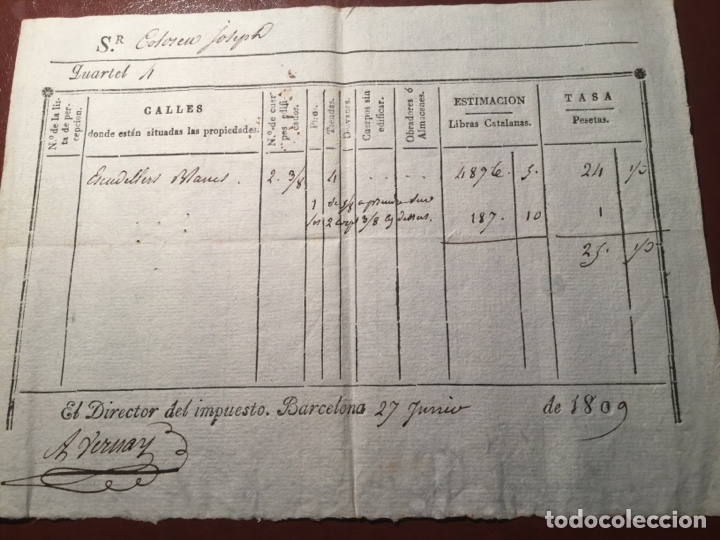 S.R Coloreu Joseph
Quartel 4
N.º de la lista de percepcion.
CALLES
donde están situadas las propiedades.
N.º de cuerpos edificados.
Pisos. Tiendas. D. varos.
Cuerpos sin edificar.
Obradores ó Almacenes.
ESTIMACION
Libras Catalanas.
TASA
Pesetas.
Escudellers Blancs. 2. 3/8 4 4876. 5. 24
1 de
2 3/8 187. 10 1
25.
El Director del impuesto. Barcelona 27 Junio de 1809
A Vernay
todocoleccion
todocoleccion.net